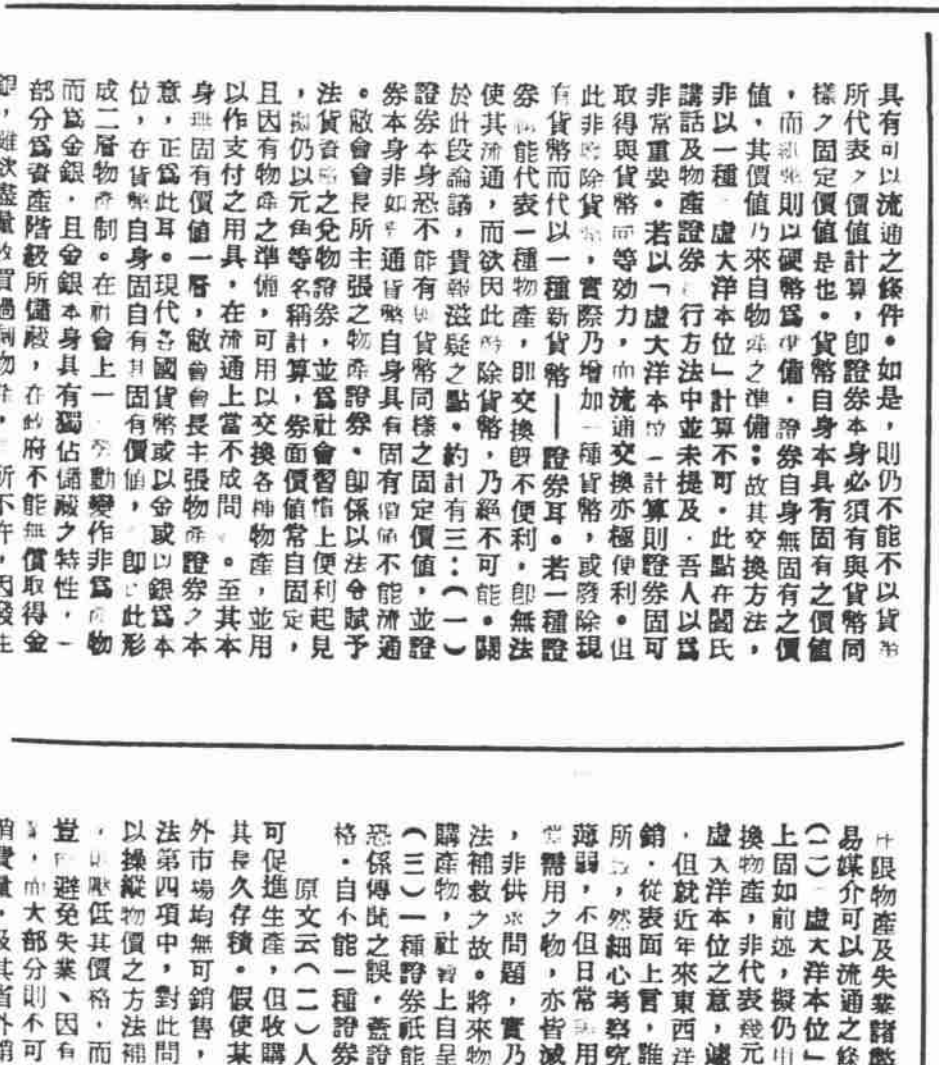 具有可以流通之條件。如是，則仍不能不以貨幣
所代表之價值計算，卽證券本身必須有與貨幣同
樣之固定價値是也。貨幣自身本具有固有之價値
，而則以硬幣爲準備，證券自身無固有之價
値，其價値乃來自物產之準備；故其交換方法，
非以一種「虛大洋本位」計算不可。此點在閻氏
講話及物產證券行方法中並未提及，吾人以爲
非常重要。若以「虛大洋本位」計算則證券固可
取得與貨幣同等効力，而流通交換亦極便利。但
此非廢除貨幣，實際乃增加一種貨幣，或廢除現
有貨幣而代以一種新貨幣——證券耳。若一種證
券能代表一種物產，卽交換旣不便利，卽無法
使其流通，而欲因此廢除貨幣，乃絕不可能。關
於此段論議，貴報滋疑之點，約計有三：（一）
證券本身恐不能有與貨幣同樣之固定價値，並證
券本身非如通貨幣自身具有固有價値不能流通
。敝會會長所主張之物產證券，卽係以法令賦予
法貨資格之兌物證券，並爲社會習慣上便利起見
，擬仍以元角等名稱計算，券面價値常自固定，
且因有物產之準備，可用以交換各種物產，並用
以作支付之用具，在流通上當不成問。至其本
身無固有價値一層，敝會會長主張物產證券之本
意，正爲此耳。現代各國貨幣或以金或以銀爲本
位，在貨幣自身固自有其固有價値，卽以此形
成二層物產制。在社會上一勞動變作非爲物
而爲金銀，且金銀本身具有獨佔儲藏之特性，一
部分爲資產階級所儲藏，在政府不能無償取得金
銀，雖欲盡量收買過剩物產，所不許，因發生
限物產及失業諸弊
易媒介可以流通之條
（二）「虛大洋本位」
上固如前述，擬仍用
換物產，非代表幾元
虛大洋本位之意，
，但就近年來東西洋
銷，從表面上言，誰
所，然細心考察究
薄弱，不但日常用
需用之物，亦皆減
，非供求問題，實乃
法補救之故。將來物
購產物，社會上自呈
（三）一種證券祇能
恐係傳聞之誤，蓋證
格，自不能一種證券
原文云（二）人
可促進生產，但收購
其長久存積。假使某
外市場均無可銷售，
法第四項中，對此問
以操縱物價之方法補
，壓低其價格，而
豈避免失業、因有
，而大部分則不可
消費量，及其省外銷